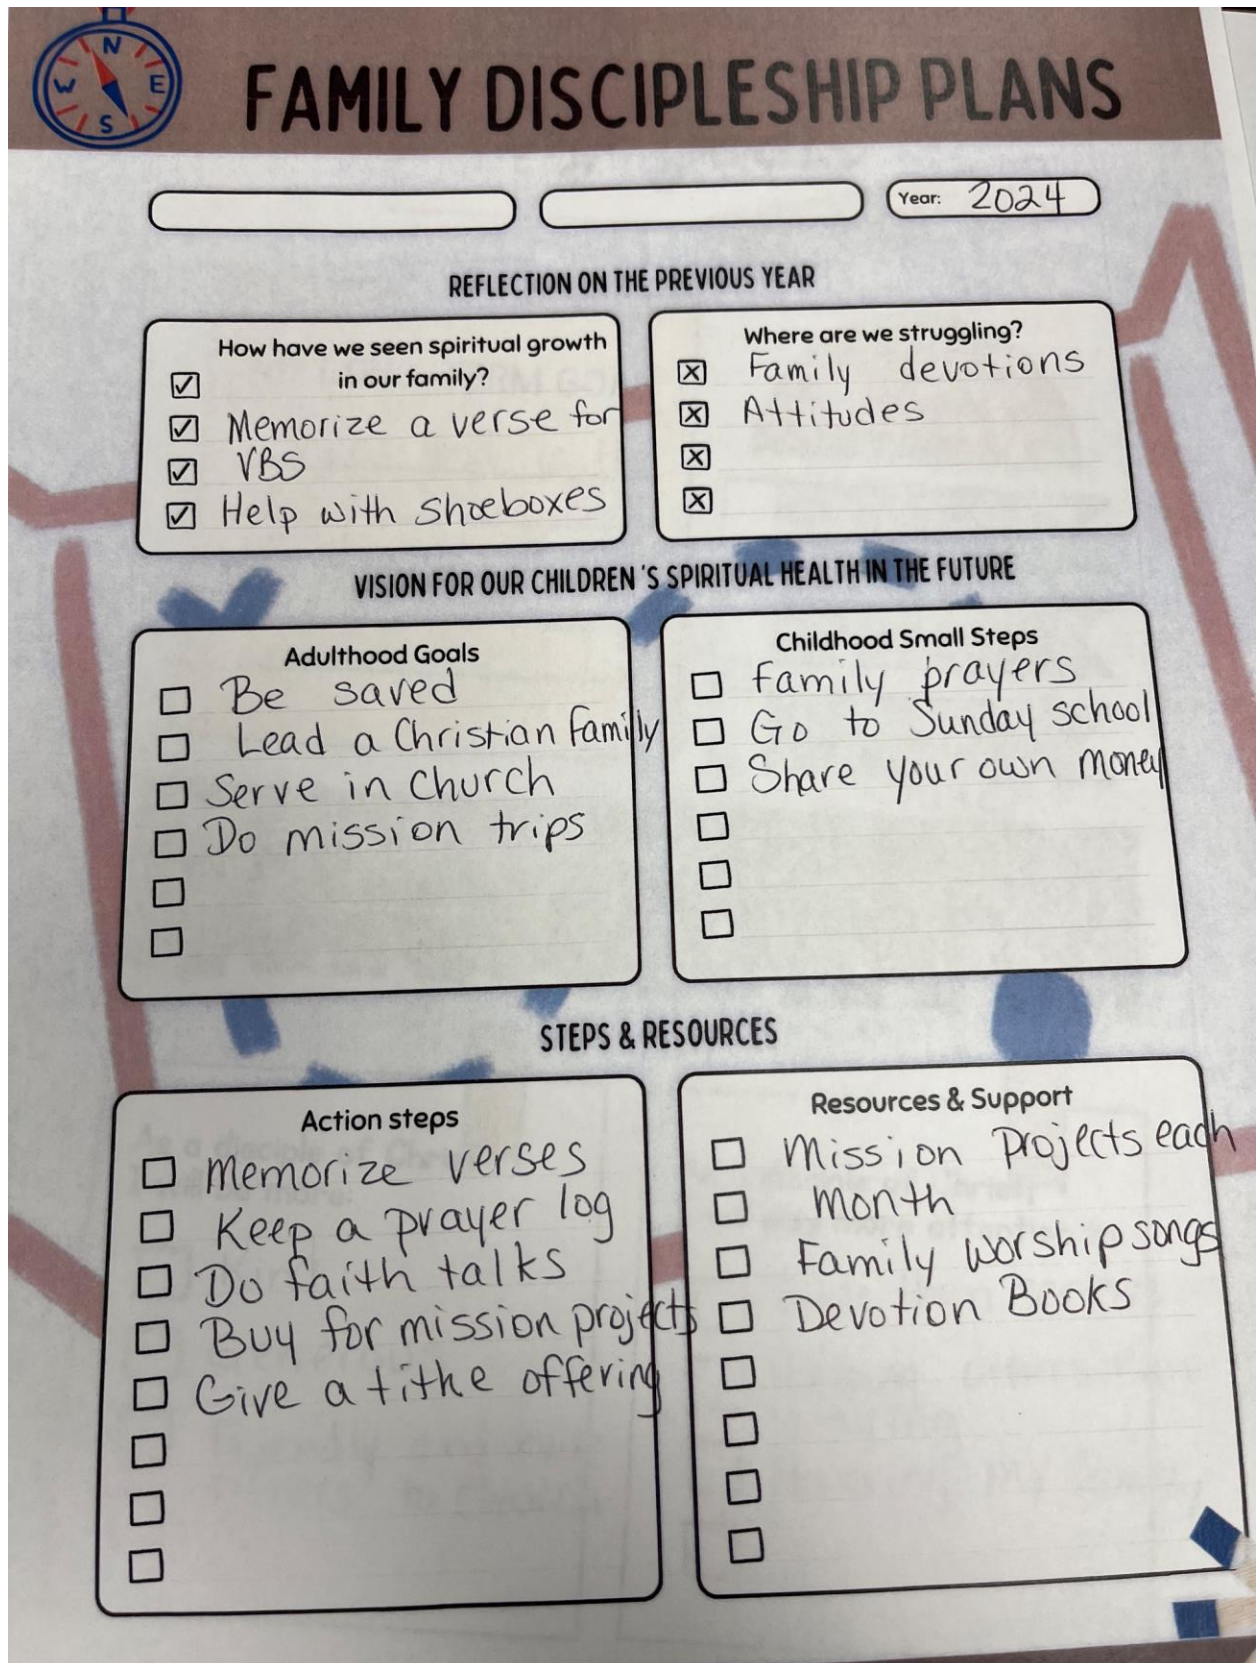 N
W E
S
FAMILY DISCIPLESHIP PLANS
Year: 2024
REFLECTION ON THE PREVIOUS YEAR
How have we seen spiritual growth
in our family?
Memorize a verse for
VBS
Help with shoeboxes
Where are we struggling?
Family devotions
Attitudes
VISION FOR OUR CHILDREN 'S SPIRITUAL HEALTH IN THE FUTURE
Adulthood Goals
Be saved
Lead a Christian family
Serve in church
Do mission trips
Childhood Small Steps
Family prayers
Go to Sunday school
Share your own money
STEPS & RESOURCES
Action steps
Memorize verses
Keep a prayer log
Do faith talks
Buy for mission projects
Give a tithe offering
Resources & Support
Mission Projects each
Month
Family worship songs
Devotion Books